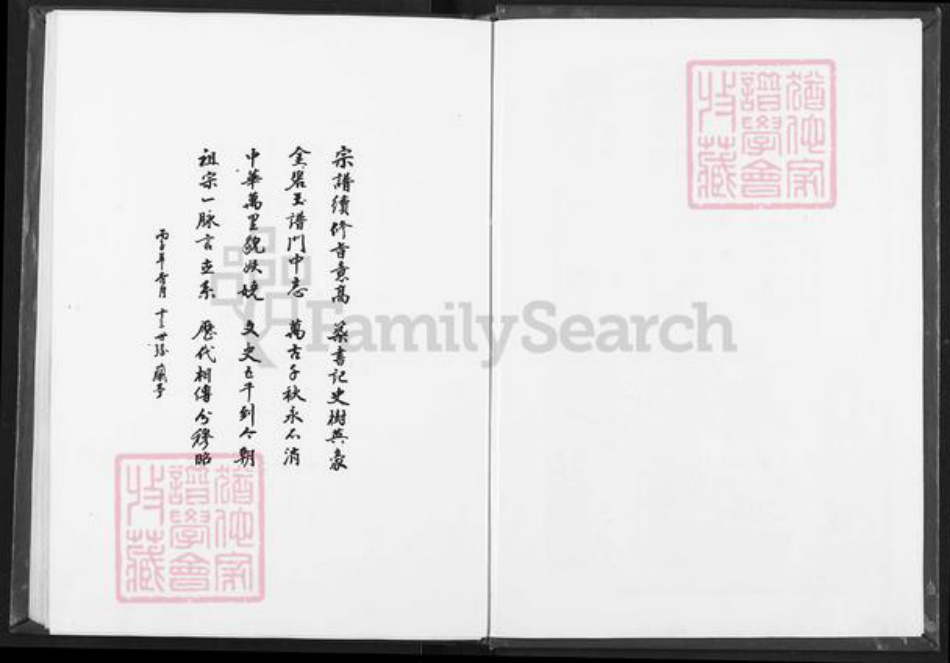 宗譜續修旨意高 築書記史樹英豪
金碧玉譜門中志 萬古千秋永不消
中華萬里貌妖嬈 文史五千到今朝
祖宗一脉言立系 歷代相傳分穆昭
丙子年 月 十三世孫
猶他家
譜學會
收藏
猶他家
譜學會
收藏
FamilySearch